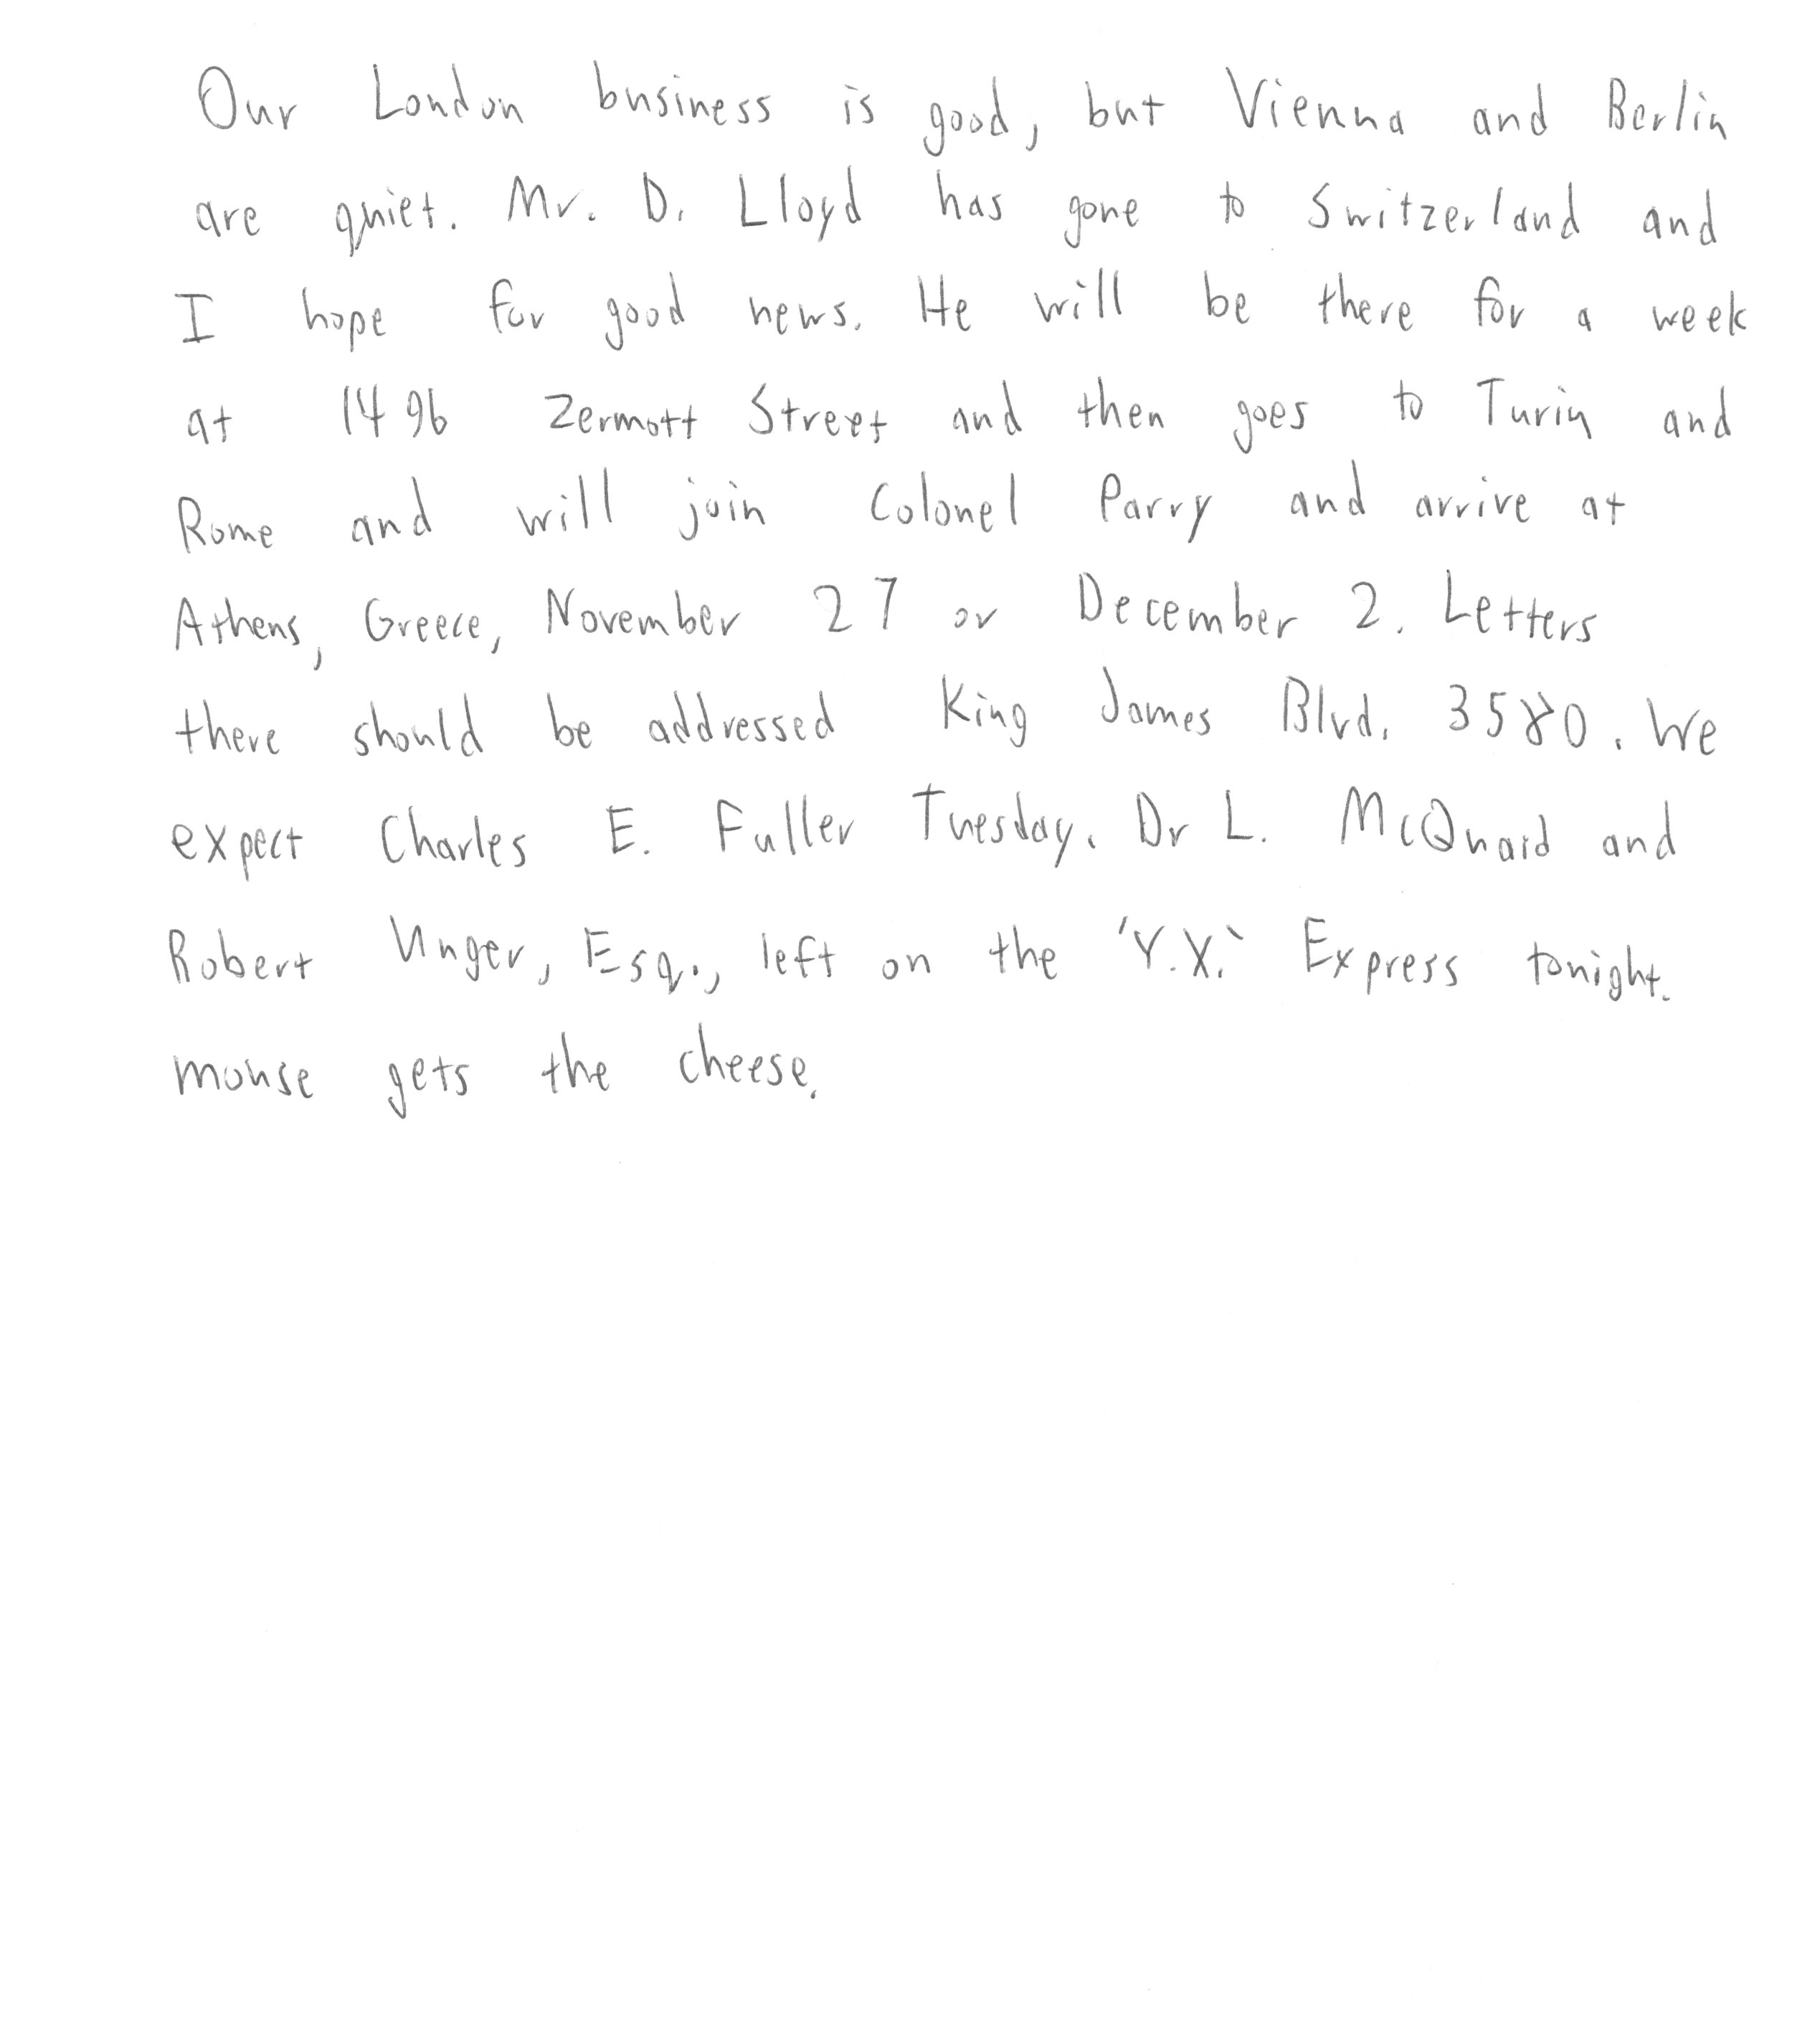 Our London business is good, but Vienna and Berlin
are quiet. Mr. D. Lloyd has gone to Switzerland and
I hope for good news. He will be there for a week
at 1496 Zermott Street and then goes to Turin and
Rome and will join Colonel Parry and arrive at
Athens, Greece, November 27 or December 2. Letters
there should be addressed King James Blvd. 3580. We
expect Charles E. Fuller Tuesday. Dr L. McQuaid and
Robert Unger, Esq., left on the 'Y.X.' Express tonight.
mouse gets the cheese.